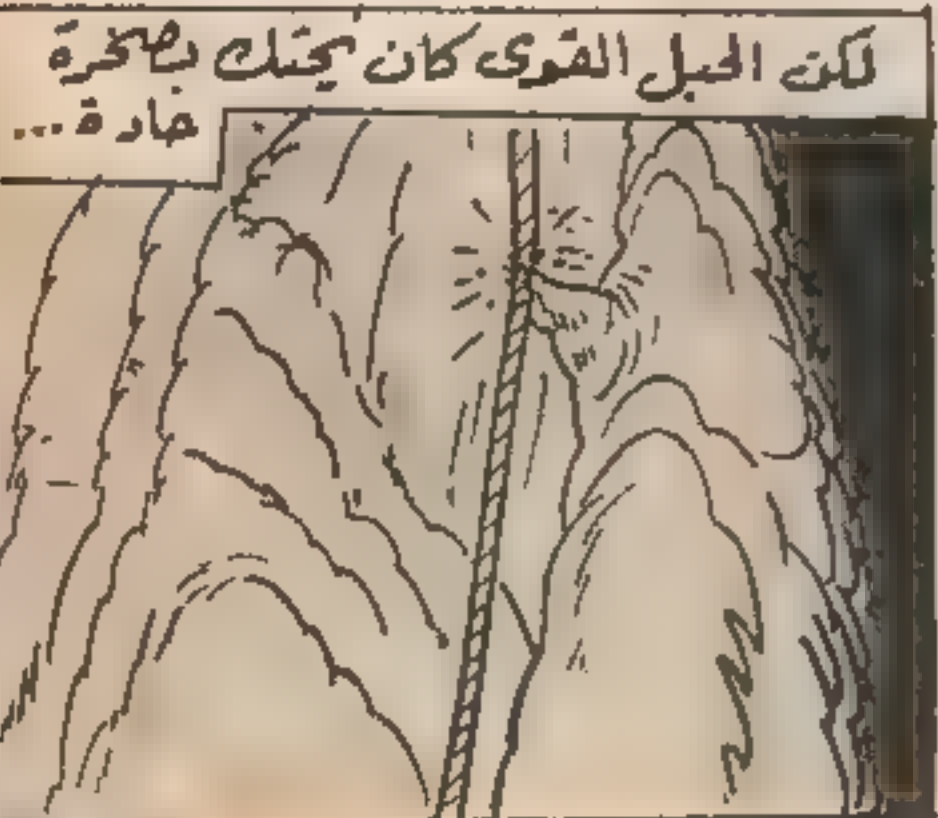 لكن الحبل القوى كان يحتك بصخرة
حادة...